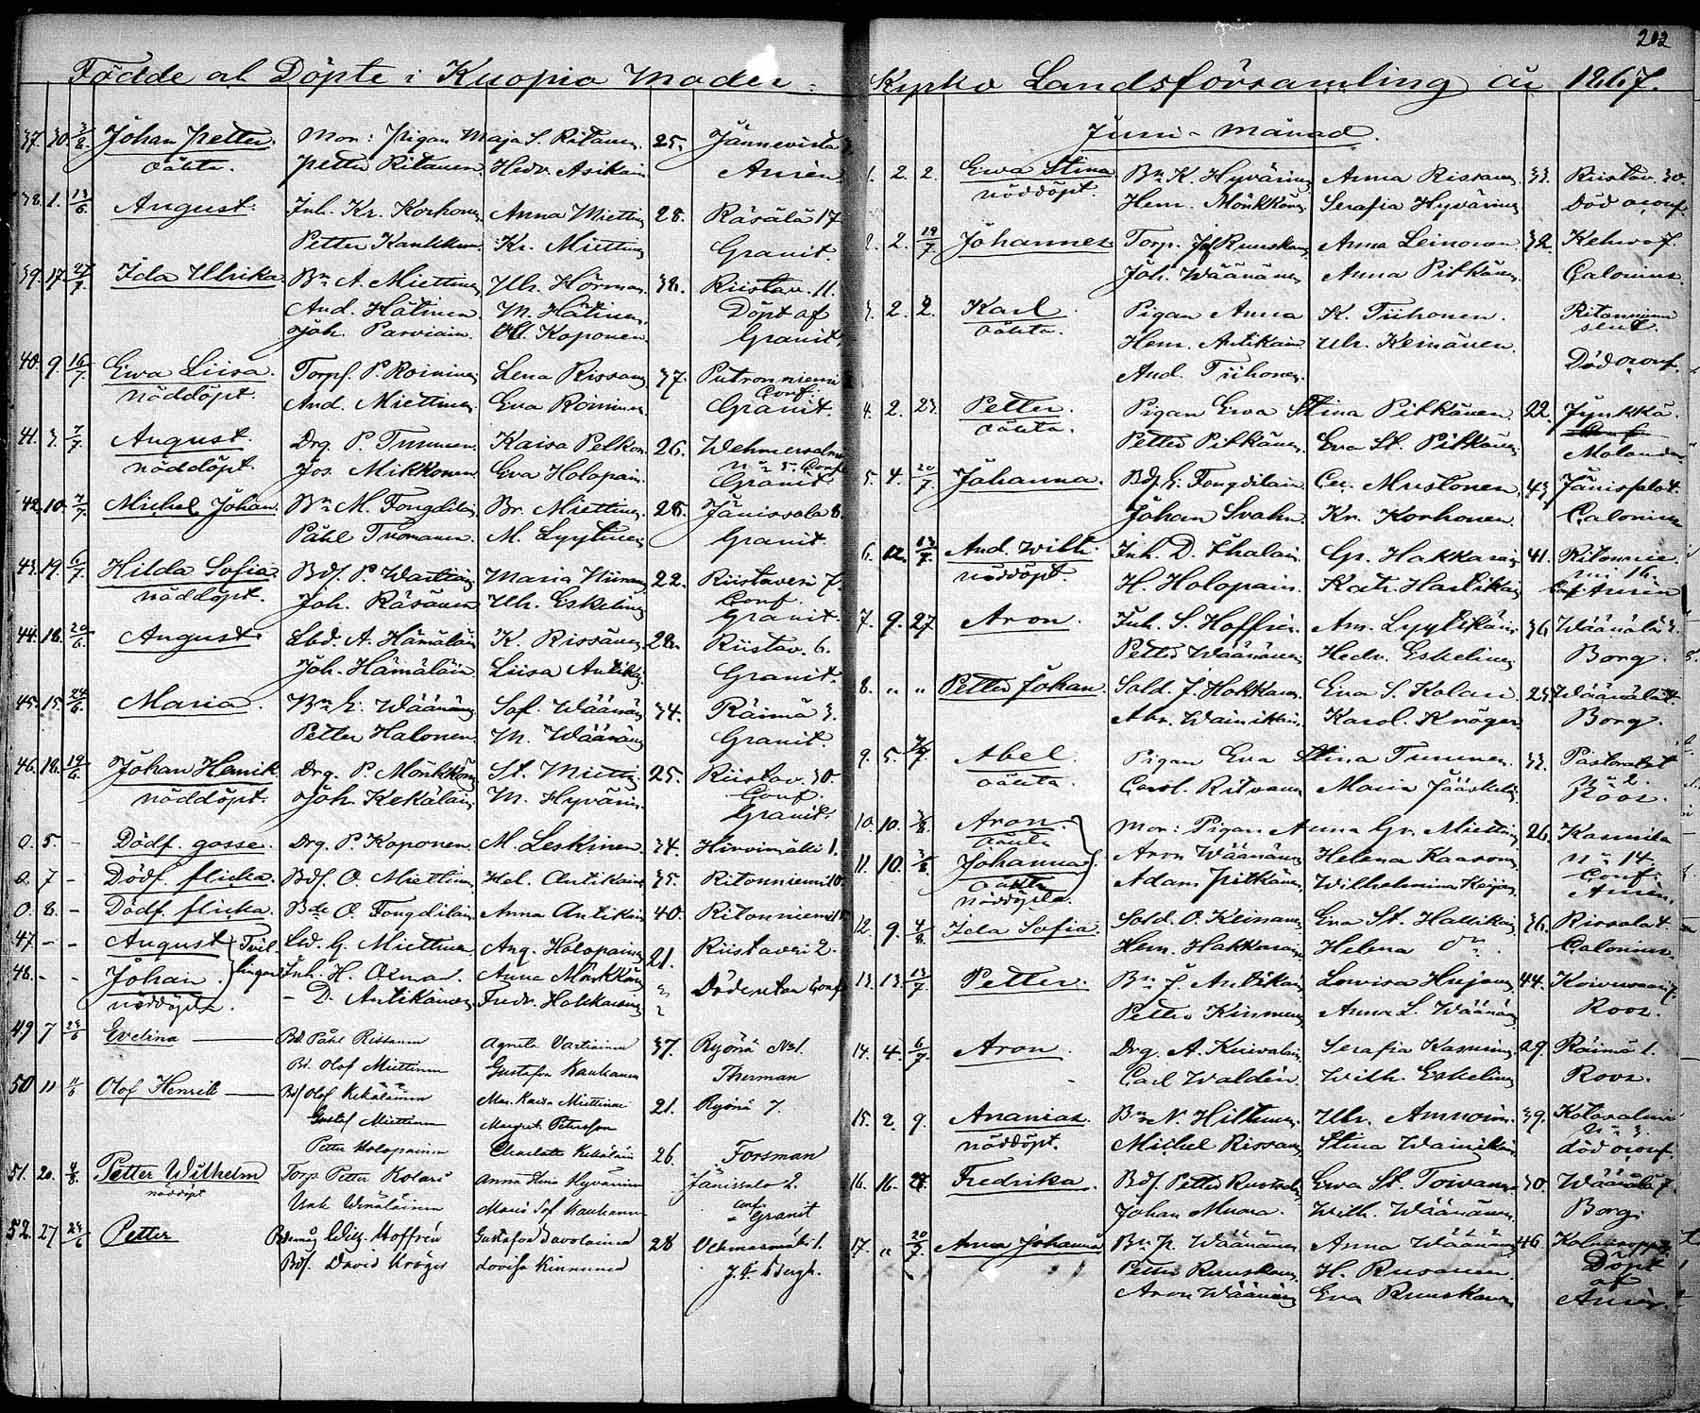 Födde ol Döpte i Kuopio Moder-
37. 30. 3/8. Johan Petter. Mor: Pigan Maja S. Ritanen. 25. Jännevirta
oäkta. Petter Ritanen. Hedv. Asikain. Amén.
38. 1. 13/6. August. Inh. Kr. Korhonen Anna Mietti 28. Räsälä 17.
Petter Kauhanen. Kr. Miettin Granit.
39. 17. 27/7. Ida Ulrika. Bn A. Miettin Ulr. Hörman. 38. Riistav. 11.
And. Hätinen. M. Hätinen. Döpt af
Joh. Parviain. Ul. Koponen. Granit.
40. 9. 16/7. Ewa Liisa. Torpf. P. Roininen Lena Rissan 37. Putronniemi
nöddöpt. And. Miettinen Eva Roininen Conf. Granit.
41. 3. 7/7. August. Drg P. Tuunen. Kaisa Pelkon. 26. Wehmersalmi
nöddöpt. Jos. Mikkonen Eva Holopain. Conf. Granit.
42. 10. 7/7. Michel Johan. Bn M. Fongdelin Br. Miettin 28. Jänissalo 8.
Påhl Tuomanen. M. Lyytinen Granit.
43. 19. 6/7. Hilda Sofia. Bdf. P. Wartiain Maria Niiran 22. Riistaveri 7.
nöddöpt. Joh. Räsänen Ulr. Eskelin Conf. Granit.
44. 18. 20/6. August. Lbd. A. Hämäläi K. Rissänen 22. Riistav. 6.
Joh. Hämäläin Liisa Antikai Granit.
45. 15. 24/6. Maria. Bn E. Wäänän Sof. Wäänän 34. Räimä 3.
Petter Halonen. M. Wäänän Granit.
46. 18. 19/6. Johan Henrik Drg. P. Mönkkön St. Miettin 25. Riistav. 30.
nöddöpt. Joh. Kekäläin M. Hyvärin. Conf. Granit.
0. 5. - Dödf. gosse. Drg. P. Koponen. M. Leskinen. 34. Hirvimäki 1.
0. 7 - Dödf. flicka. Bdf. O. Miettin Hel. Antikain 35. Ritonniemi 10.
0. 8. - Dödf. flicka. Bde O. Fongdelin Anna Antikain 40. Ritonniemi
47. - - August Tvil- Lbd. G. Miettinen Aug. Holopain 21. Riistaveri 2.
48. - - Johan. lingar Inh. H. Anna Mönkkön
nöddöpta. - D. Antikainen Fredr. Hakkarain Döde utan Conf
49 7 24/6 Evelina Bd. Påhl Rissanen Agneta Vartiainen 37. Ryönä No 1.
Bd. Olof Miettinen Gustafva Kauhanen Therman
50 11 11/6 Olof Henrik Bdf Olof Kekäläinen Mar. Kaisa Miettinen 21. Ryönä 7.
Gustaf Miettinen Margret Peterson
Petter Holopainen Charlotta Kekäläin 26. Forsman
51. 20. 4/8. Petter Wilhelm Torp Petter Kolari Anna Stina Hyvärinen Jänissalo 2.
nöddöpt Winäläinen Maria Sof. Kauhanen conf. Granit
52. 27 24/6 Petter Bdemåg Wilh. Hoffrén Gustafva Savolainen 28 Vehmasmäki 1.
Bdf. David Kröger Lovisa Kinnunen J. F. Bergh.
212
Kyrko Landsförsamling år 1867.
Juni-månad.
1. 2. 2. Ewa Stina Bn K. Hyvärin Anna Rissan 33. Riistav. 30.
nöddöpt. Henr. Mönkkön Serafia Hyvärin Död oconf.
2. 2. 19/7. Johannes Torp. Joh Ruuskan Anna Leinonen 32. Kehvo 7.
Joh. Wäänänen Anna Pitkän Calonius.
3. 2. 2. Karl. Pigan Anna K. Tiihonen. Ritoniemi
oäkta. Henr. Antikain Ulr. Keinänen.
And. Tiihonen. Död oconf.
4. 2. 23. Petter. Pigan Ewa Stina Pitkänen 22. Jynkkä.
oäkta. Petter Pitkänen Eva St. Pitkänen Molander
5. 4. 20/7. Johanna. Bdf. E. Fongdelain Cec. Mustonen 43. Jänissalo 4.
Johan Svahn. Kr. Korhonen. Calonius
6. 12. 13/7. And. Wilh. Inh. D. Gr. Hakkarain 41. Ritonnie
nöddöpt H. Holopain. Kath. Hartikai mi 16. Conf. Amén
7. 9. 27. Aron. Inh. S. Hoffrén. Ann. Lyytikäin 36 Wäänälä 3.
Petter Wäänänen Hedv. Eskelin Borg.
8. " " Petter Johan. Sold. J. Hakkara Eva S. Kolari 25. Wäänälä 4.
Abr. Wainikkai. Karol. Kröger. Borg.
9. 5. 7/7. Abel. Pigan Eva Stina Tuunen. 32. Pastoratet
oäkta. Carol. Ritvanen Maria Jääskelä No 2. Roos.
10. 10. 3/8. Aron. Mor: Pigan Anna Gr. Miettin 26. Kasurila
oäkta Aron Wäänän Helena Kaason No 14.
11. 10. 3/8. Johanna. Adam Pitkänen Wilhelmina Conf.
oäkta nöddöpta. Amén.
12. 9. 4/8. Ida Sofia. Sold. O. Keinänen Eva St. Hallikai 36. Rissala 4.
Henr. Hakkarain Helena Dn. Calonius
13. 13. 13/7. Petter. Bn J. Antikain Lowisa Hujan 44. Koivusaari
Petter Kinnunen Anna L. Wäänän Roos.
14. 4. 6/7. Aron. Drg. A. Kuivalain Serafia Kasurin 29. Räimä 1.
Carl Waldén. Wilh. Eskelin Roos.
15. 2. 9. Ananias. Bn N. Hiltunen. Ulr. Ammoin 39. Kotasalmi
nöddöpt. Michel Rissan Stina Wainikai No 3. död oconf.
16. 16. 27. Fredrika. Bdf. Petter Ewa St. Toivan 30. Wäänälä 7.
Johan Muona. Wilh. Wäänänen Borg.
17. " 20/7. Anna Johanna Bn P. Wäänänen Anna Wäänän 46.
Petter Ruuskan. H. Rusanen. Döpt af
Aron Wäänän Eva Ruuskan Amén.